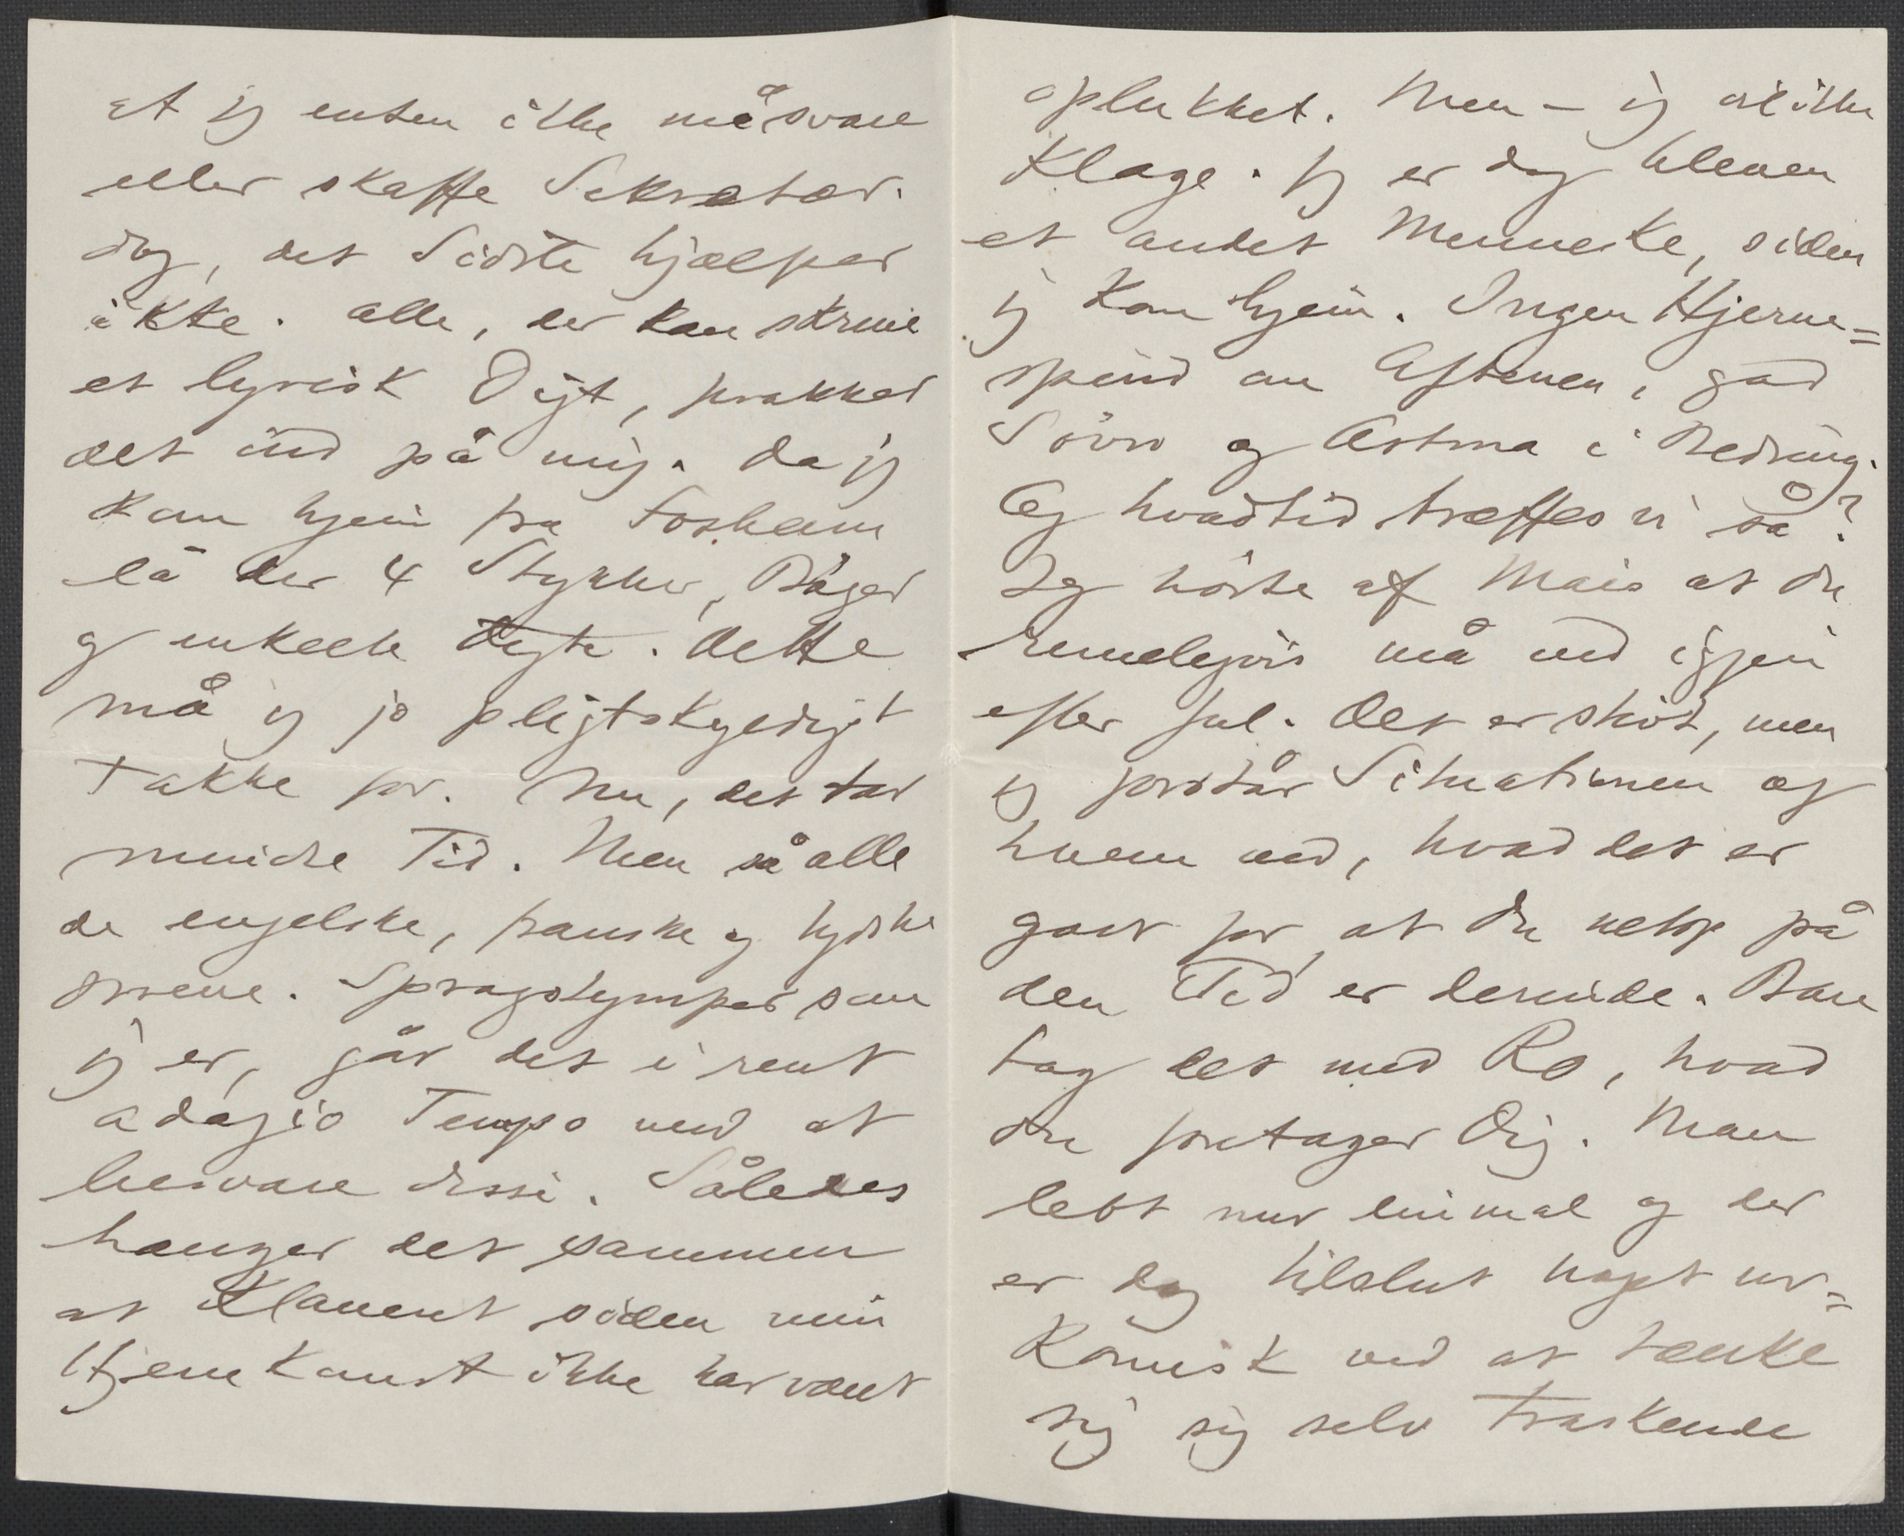 at jeg enten ikke må svare
eller skaffe Sekretær.
dog, det Sidste hjælper
ikke. alle, der kan skrive
et lyrisk Digt, prakker
det ind på mig. da jeg
kom hjem fra Fosheim
lå der 4 Stykker, Bøger
og enkelte Digte. dette
må jeg jo pligtskyldigst
takke for. Nu, det tar
mindre Tid. Men så alle
de engelske, franske og tydske
Brevene. Sprogstymper som
jeg er, går det i rent
adagio Tempo med at
besvare disse. Således
hænger det sammen
at Klaveret siden min
Hjemkomst ikke har været
oplukket. Men – jeg vil ikke
klage. Jeg er dog bleven
et andet Menneske, siden
jeg kom hjem. Ingen Hjerne=
spind om Aftenen, god
Søvn og Astma i Bedring.
Og hvadtid træffes vi så?
Jeg hørte af Mais at du
rimeligvis må ned igjen
efter Jul. Det er stivt, men
jeg forstår Situationen og
hvem ved, hvad det er
godt for at du netop på
den Tid er dernede. Bare
tag det med Ro, hvad
du foretager Dig. Man
lebt nur einmal og der
er dog tilslut noget ur=
komisk ved at tænke
sig sig selv traskende